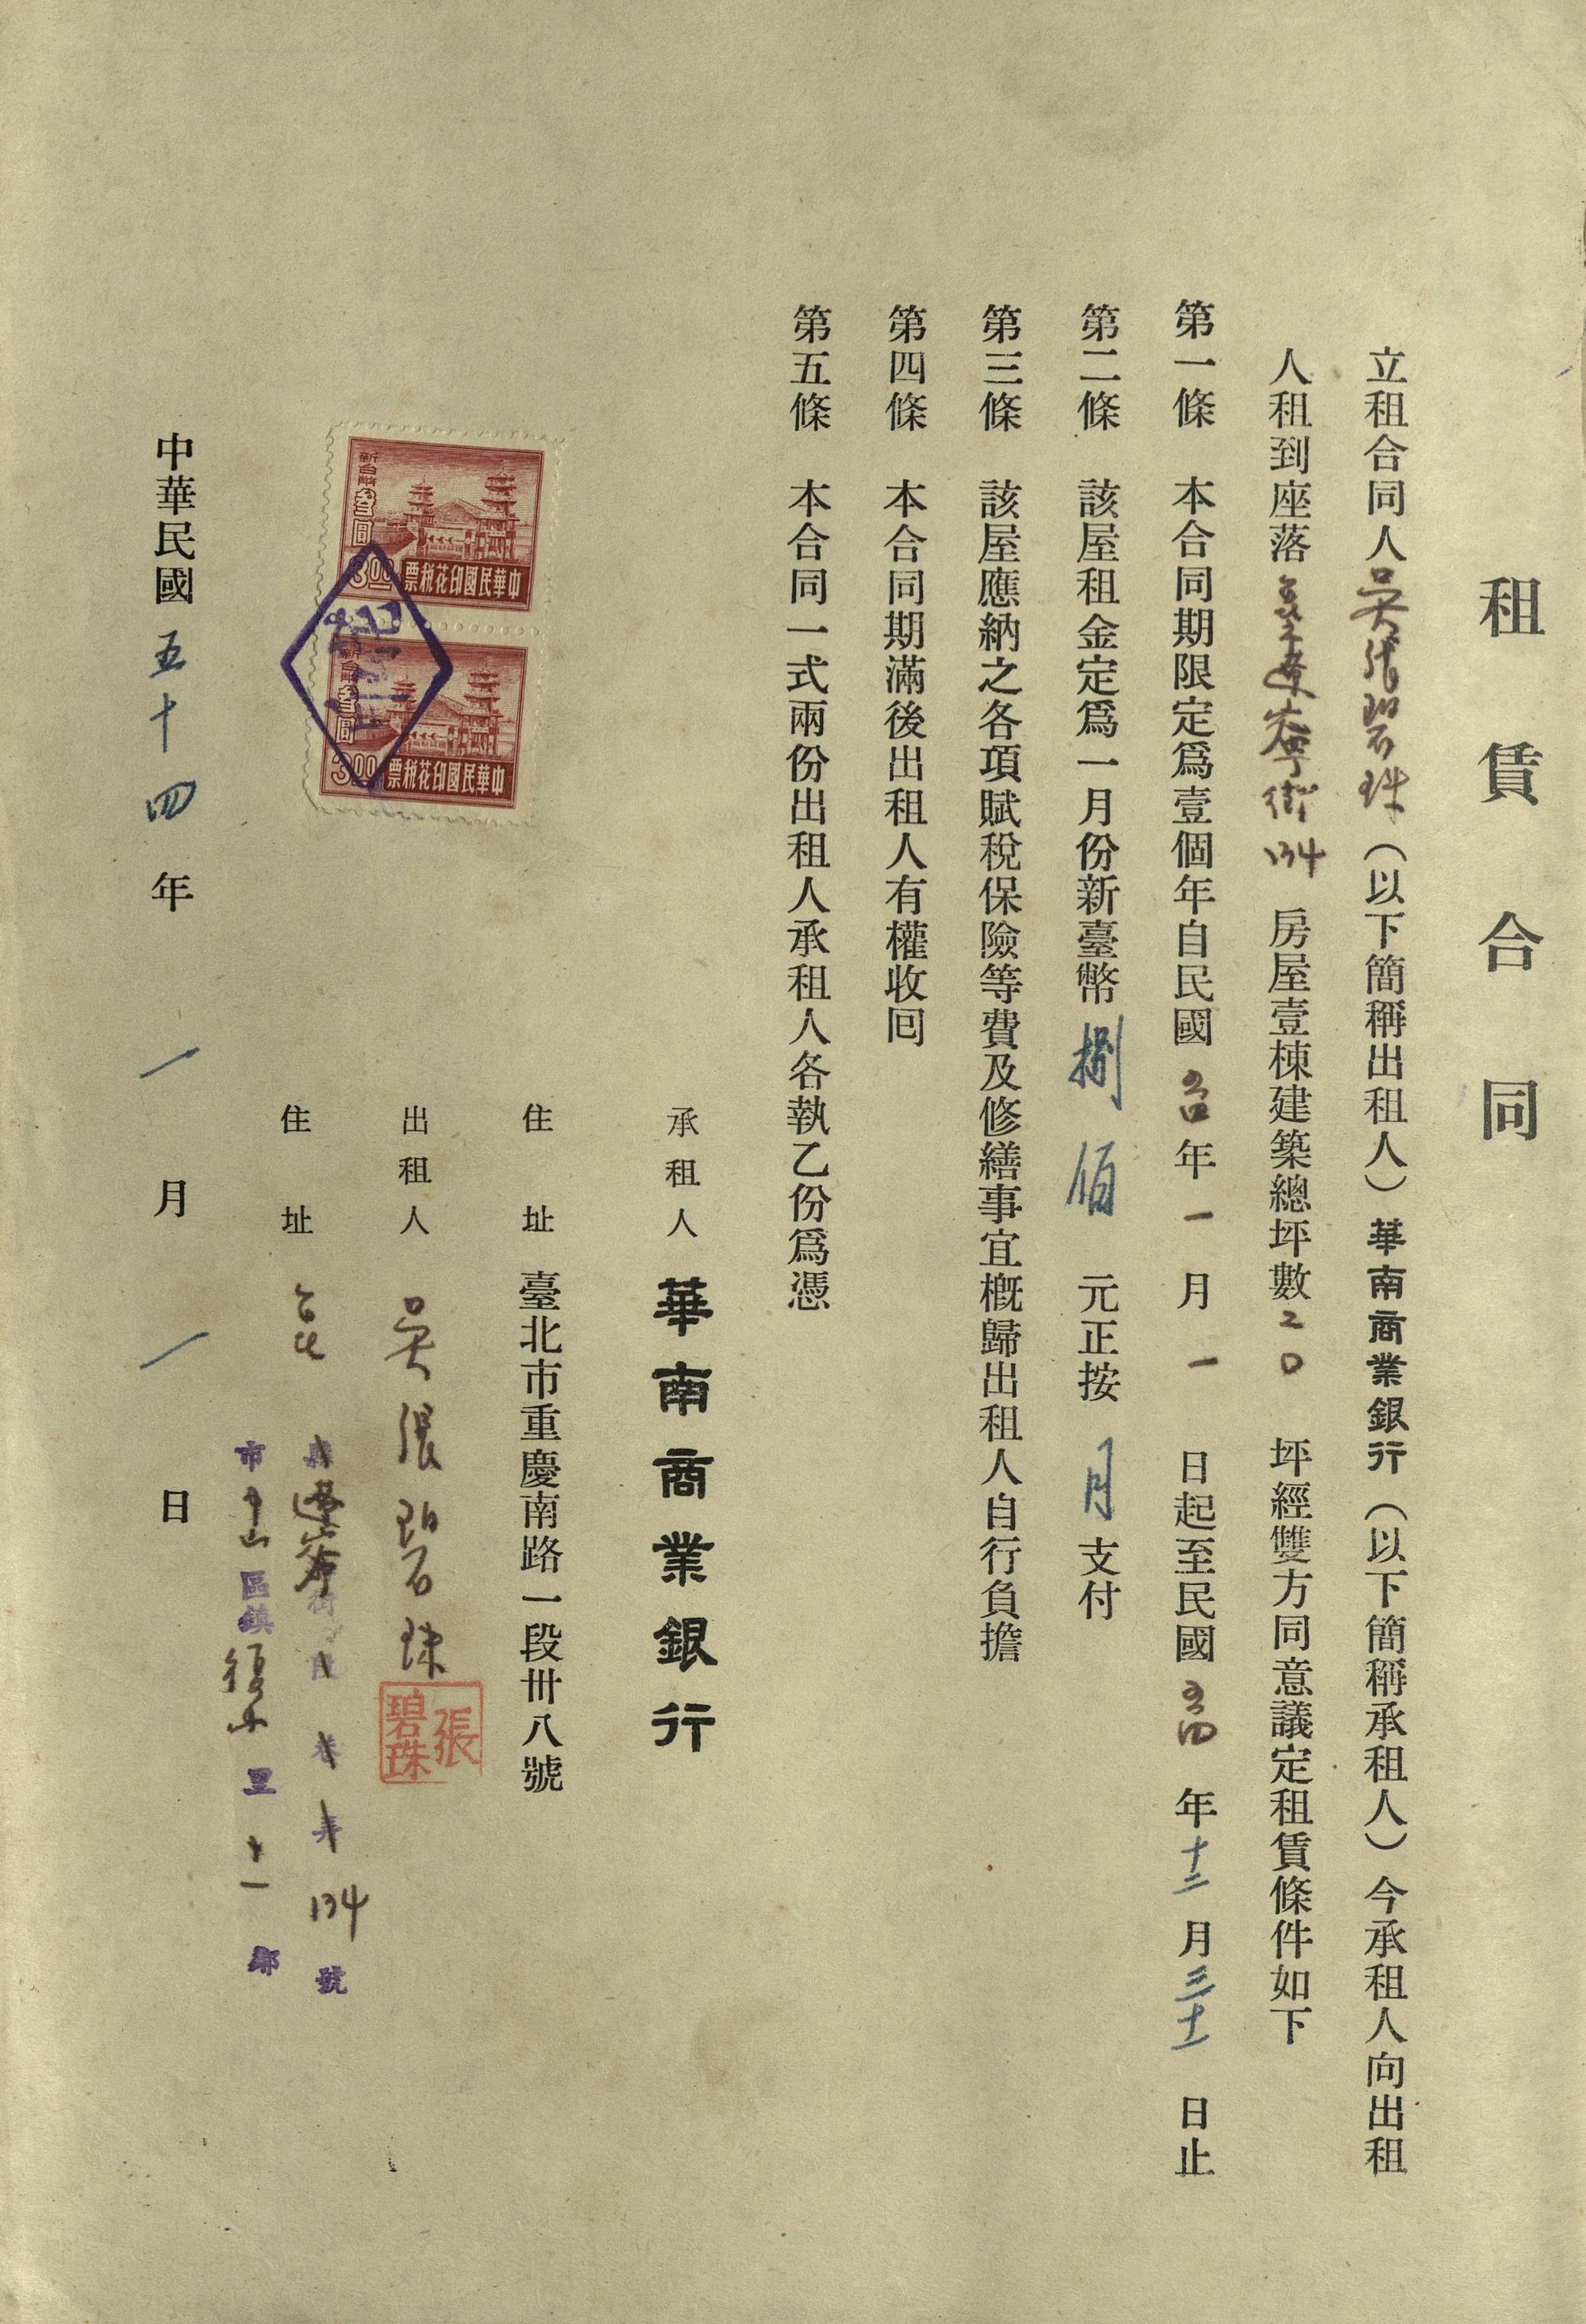 租賃合同
立租合同人吳張碧珠（以下簡稱出租人）華南商業銀行（以下簡稱承租人）今承租人向出租
人租到座落遼寧街134房屋壹棟建築總坪數二0坪經雙方同意議定租賃條件如下
第一條 本合同期限定爲壹個年自民國五四年一月一日起至民國五四年十二月三十一日止
第二條 該屋租金定爲一月份新臺幣捌佰元正按月支付
第三條 該屋應納之各項賦稅保險等費及修繕事宜概歸出租人自行負擔
第四條 本合同期滿後出租人有權收囘
第五條 本合同一式兩份出租人承租人各執乙份爲憑
承租人 華南商業銀行
住址 臺北市重慶南路一段卅八號
出租人 吳張碧珠
張碧珠
住址 台北
縣遼寧街段巷弄134號
市中山區鎮復里十一鄰
新台幣叁圓
3.00
中華民國印花稅票
新台幣叁圓
3.00
中華民國印花稅票
中華民國五十四年一月一日